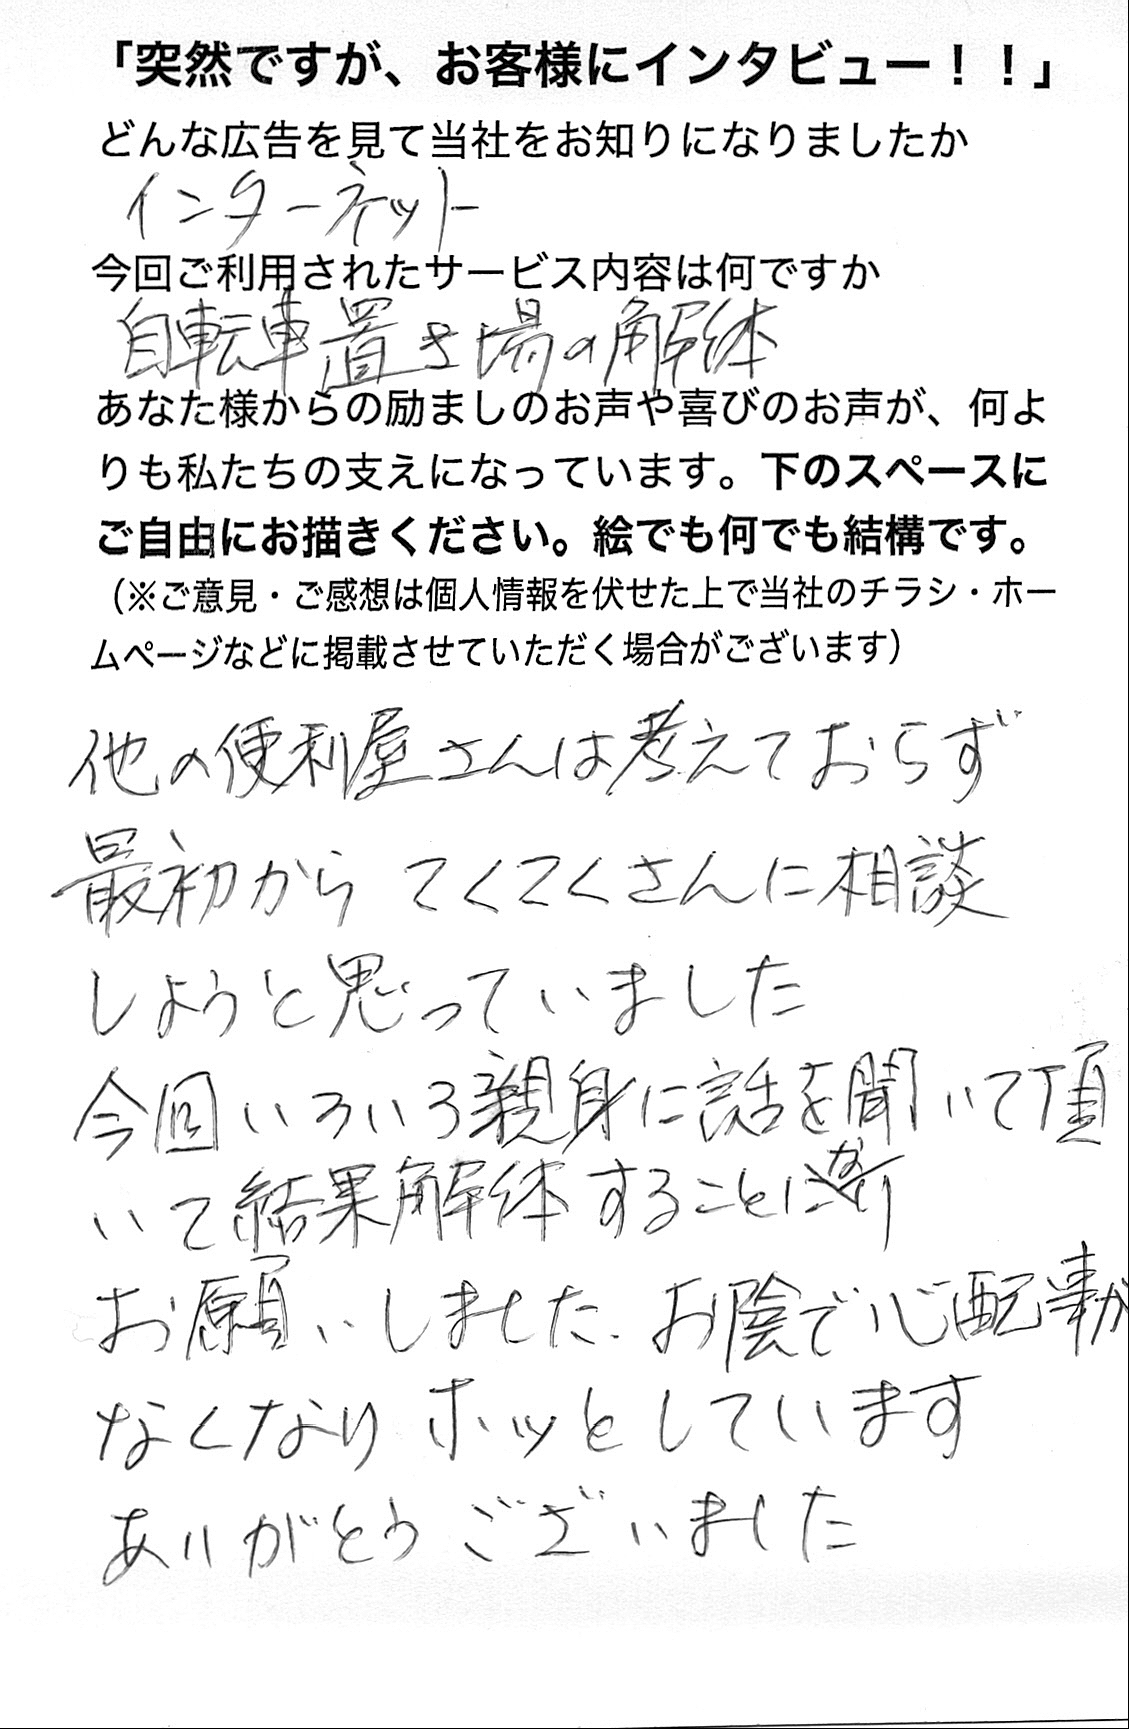 「突然ですが、お客様にインタビュー！！」
どんな広告を見て当社をお知りになりましたか
インターネット
今回ご利用されたサービス内容は何ですか
自転車置き場の解体
あなた様からの励ましのお声や喜びのお声が、何よ
りも私たちの支えになっています。下のスペースに
ご自由にお描きください。絵でも何でも結構です。
（※ご意見・ご感想は個人情報を伏せた上で当社のチラシ・ホー
ムページなどに掲載させていただく場合がございます）
他の便利屋さんは考えておらず
最初から てくてくさんに相談
しようと思っていました
今回いろいろ親身に話を聞いて頂
いて結果解体することになり
お願いしました. お陰で心配事が
なくなり ホッとしています
ありがとうございました